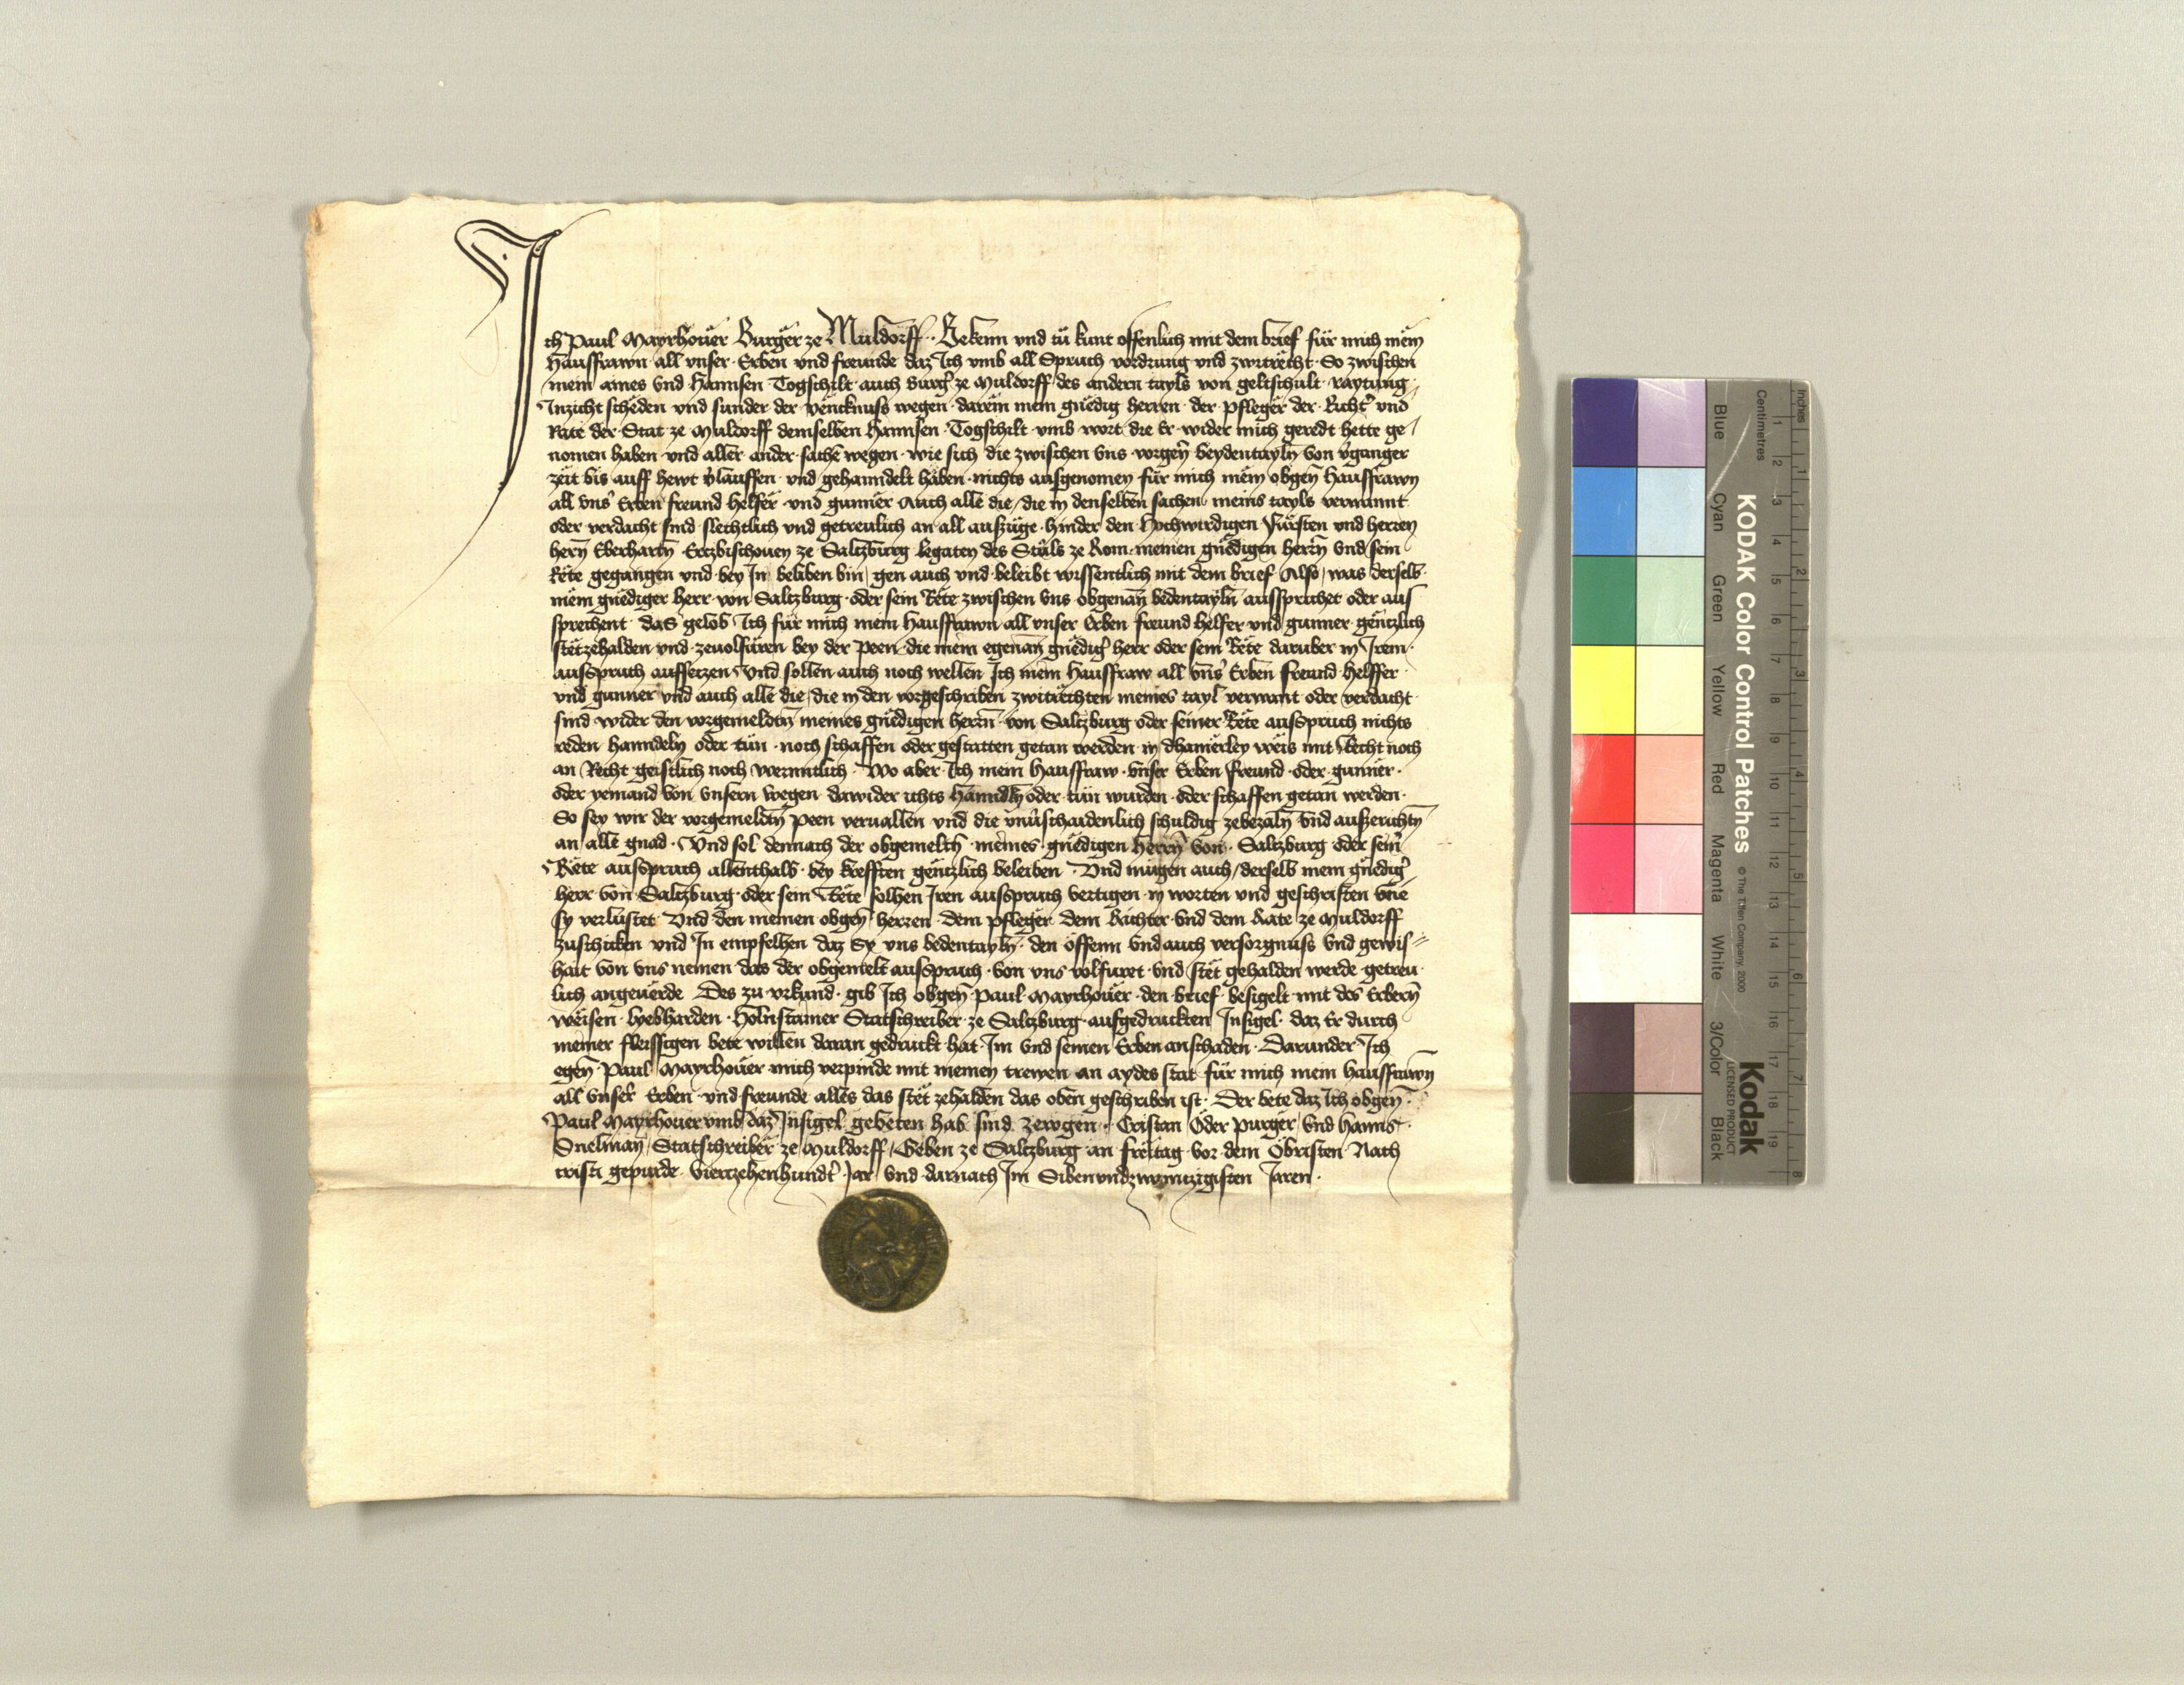 Ich Paul Mayrhouer Burger ze Muldorff · Bekenn vnd tů kunt offenlich mit dem brief für mich mein
Hausfrawn all vnser Erben vnd freunde daz Ich vmb all Spruch vordrung vnd zwitrecht · So zwischen
mein aines vnd Hannsen Togschilt auch Burger ze Muldorff des andern tayls von geltschult raytung
Inzicht scheden vnd sunder der vencknuss wegen darein mein gnedig herren der Pfleger der Richter vnd
Rate der Stat ze Muldorff demselben Hannsen Togschilt vmb wort die Er wider mich geredt hette ge
nomen haben vnd aller ander sache wegen wie sich die zwischen vns vorgen beydentayln von
zeit bis auff hewt verlauffen vnd gehanndelt haben nichts ausgenomen für mich mein obgen hausfrawn
all vnser Erben freund helfer vnd gunner Auch alle die / die in denselben sachen meins tayls verwannt
oder verdacht sind slechtlich vnd getreulich an all auszüge hinder den hochwirdigen Fürsten vnd herren
hern Eberharten Ertzbischouen ze Saltzburg legaten des Stůls ze Rom meinen gnedigen herrn vnd sein
Rete gegangen vnd bey In beliben bin / gen auch vnd beleibt wissentlich mit dem brief Also / was derselb
mein gnediger herr von Saltzburg oder sein Rete zwischen vns obgenan bedentayln ausspruchet oder aus
sprechent das gelob Ich für mich mein hausfrawn all vnser Erben freund helfer vnd gunner gentzlich
stetzehalden vnd zeuolfüren bey der peen die mein egenan gnedig herr oder sein Rete daruber in Irem
ausspruch auffsetzen Vnd sollen auch noch wellen Ich mein hausfraw all vnser Erben freund helffer
vnd gunner vnd auch alle die / die in den vorgeschriben zwitrechten meines tayl verwant oder verdacht
sind wider den vorgemeldten meines gnedigen herrn von Saltzburg oder seiner Rete ausspruch nichts
reden hanndeln oder tůn noch schaffen oder gestatten getan werden in dhainerley weis mit Recht noch
an Recht geistlich noch werntlich · Wo aber Ich mein hausfraw vnser Erben freund oder gunner
oder yemand von vnsern wegen dawider ichts hanndeln oder tůn wurden oder schaffen getan werden
So sey wir der vorgemeldten peen veruallen vnd die vnuerschaidenlich schuldig zebezaln vnd auszerichten
an alle gnad · Vnd sol dennach der obgemelten meines gnedigen herrn von Saltzburg oder seiner
Rete ausspruch allenthalb bey krefften gentzlich beleiben · Vnd mügen auch / derselb mein gnediger
herr von Saltzburg oder sein Rete solhen Iren ausspruch vertigen in worten vnd geschriften wie
sy verlustet Vnd den meinen obgen herren dem pfleger dem Richter vnd dem Rate ze Muldorff
zuschicken vnd In empfelhen daz Sy vns bedentayln den offenn vnd auch versorgnuss vnd gewis=
hait von vns nemen das der obgemelt ausspruch von vns volfuret vnd stet gehalden werde getreu
lich angeuerde Des zu vrkund gib Ich obgen Paul Mayrhouer den brief besigelt mit des Erbern
weisen Statschreiber ze Saltzburg aufgedruckten Insigel daz Er durch
meiner fleissigen bete willen daran gedruckt hat Im vnd seinen Erben anschaden · Darunder Ich
egen Paul Mayrhouer mich verpinde mit meinen trewen an aydes stat für mich mein hausfrawn
all vnser Erben vnd freunde alles das stet zehalden das oben geschriben ist · Der bete daz Ich obgen
Paul Mayrhouer vmb daz Insigel gebeten hab sind zewgen · Cristan Öder purger vnd Hanns
Snelman Statschreiber ze Muldorff / Geben ze Saltzburg an freitag vor dem Obristen Nach
cristi gepurde viertzehenhundert Jar vnd darnach Im Sibenvndzwaintzigisten Jaren
KODAK Color Control Patches
© The Tiffen Company, 2000
Kodak
LICENSED PRODUCT
Blue Cyan Green Yellow Red Magenta White 3/Color Black
Centimetres 1 2 3 4 5 6 7 8 9 10 11 12 13 14 15 16 17 18 19
Inches 1 2 3 4 5 6 7 8